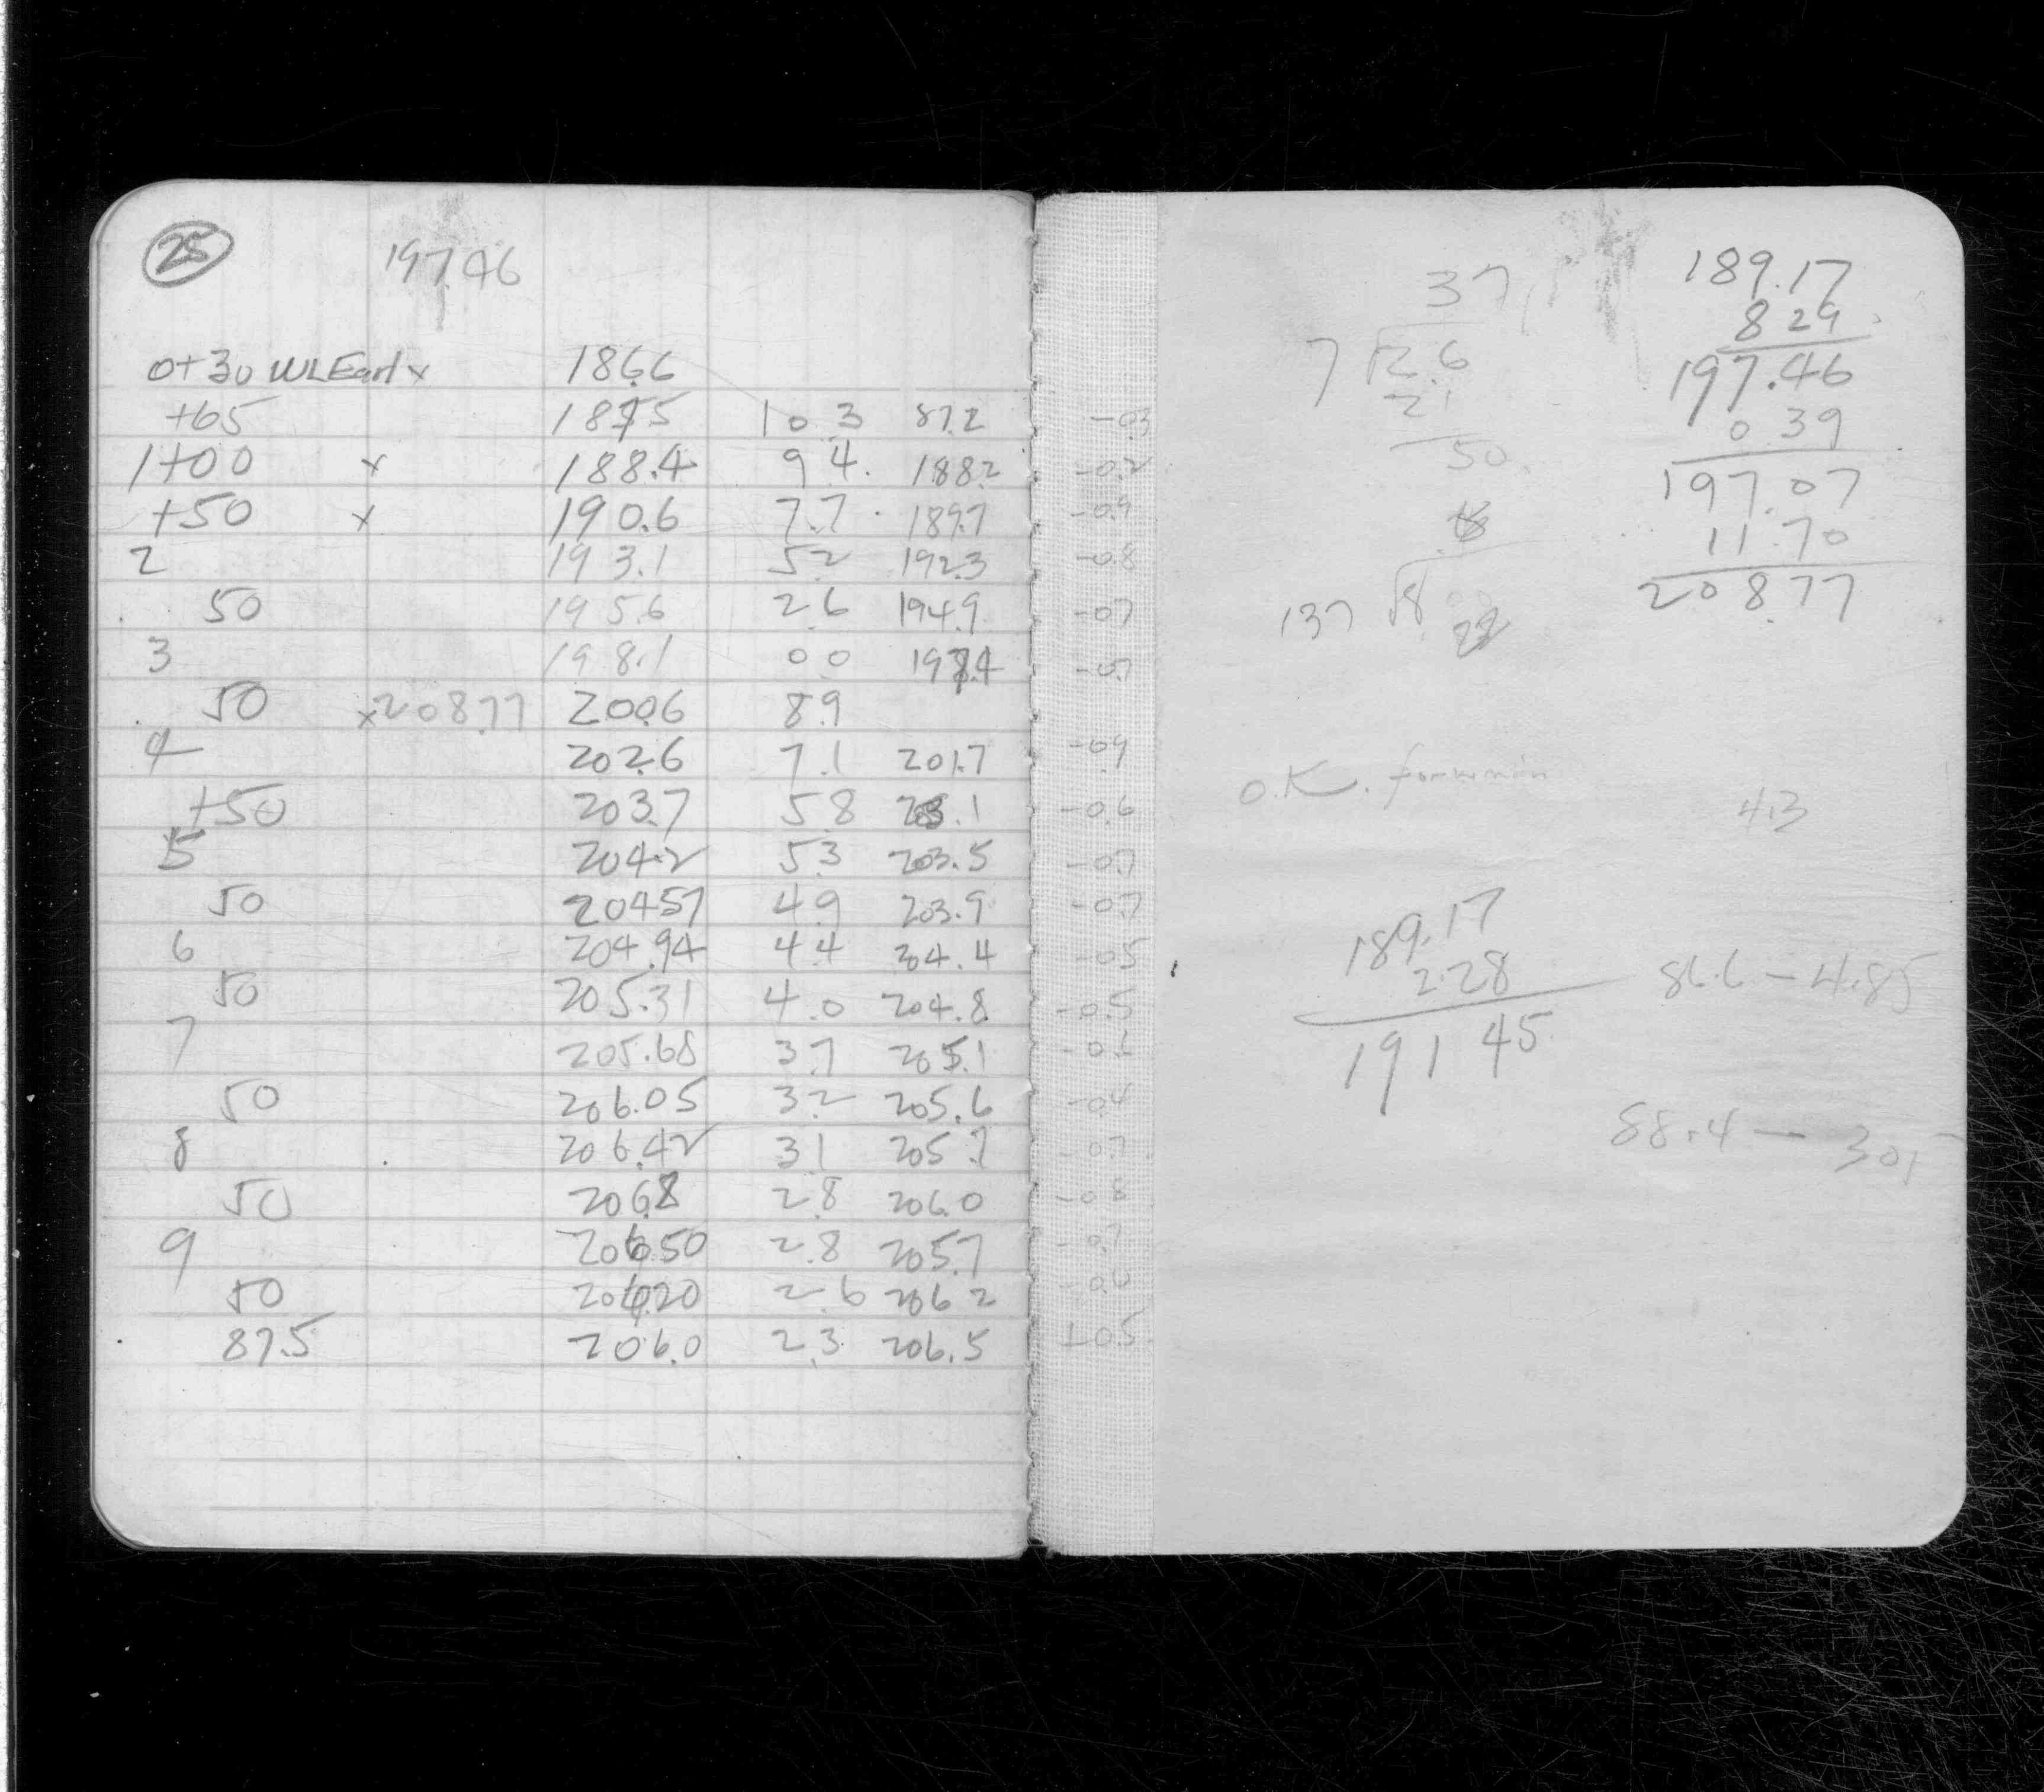 25 197.46
0+30 WL Earl x 186.6
+65 187.5 10.3 87.2 -0.3
1+00 x 188.4 9.4 188.2 -0.2
+50 x 190.6 7.7 189.7 -0.9
2 193.1 5.2 192.3 -0.8
50 195.6 2.6 194.9 -0.7
3 198.1 0.0 197.4 -0.7
50 x208.77 200.6 8.9
4 202.6 7.1 201.7 -0.9
+50 203.7 5.8 203.1 -0.6
5 204.2 5.3 203.5 -0.7
50 204.57 4.9 203.9 -0.7
6 204.94 4.4 204.4 -0.5
50 205.31 4.0 204.8 -0.5
7 205.68 3.7 205.1 -0.6
50 206.05 3.2 205.6 -0.4
8 206.42 3.1 205.7 -0.7
50 206.8 2.8 206.0 -0.8
9 206.50 2.8 205.7 -0.7
50 206.20 2.6 206.2
87.5 206.0 2.3 206.5 +0.5
189.17
8 29
197.46
0 39
197.07
11.70
208.77
37
7 2.6
21
50
137 8
O.K.
4.3
189.17
2.28
191 45
86.6 - 4.85
88.4 -